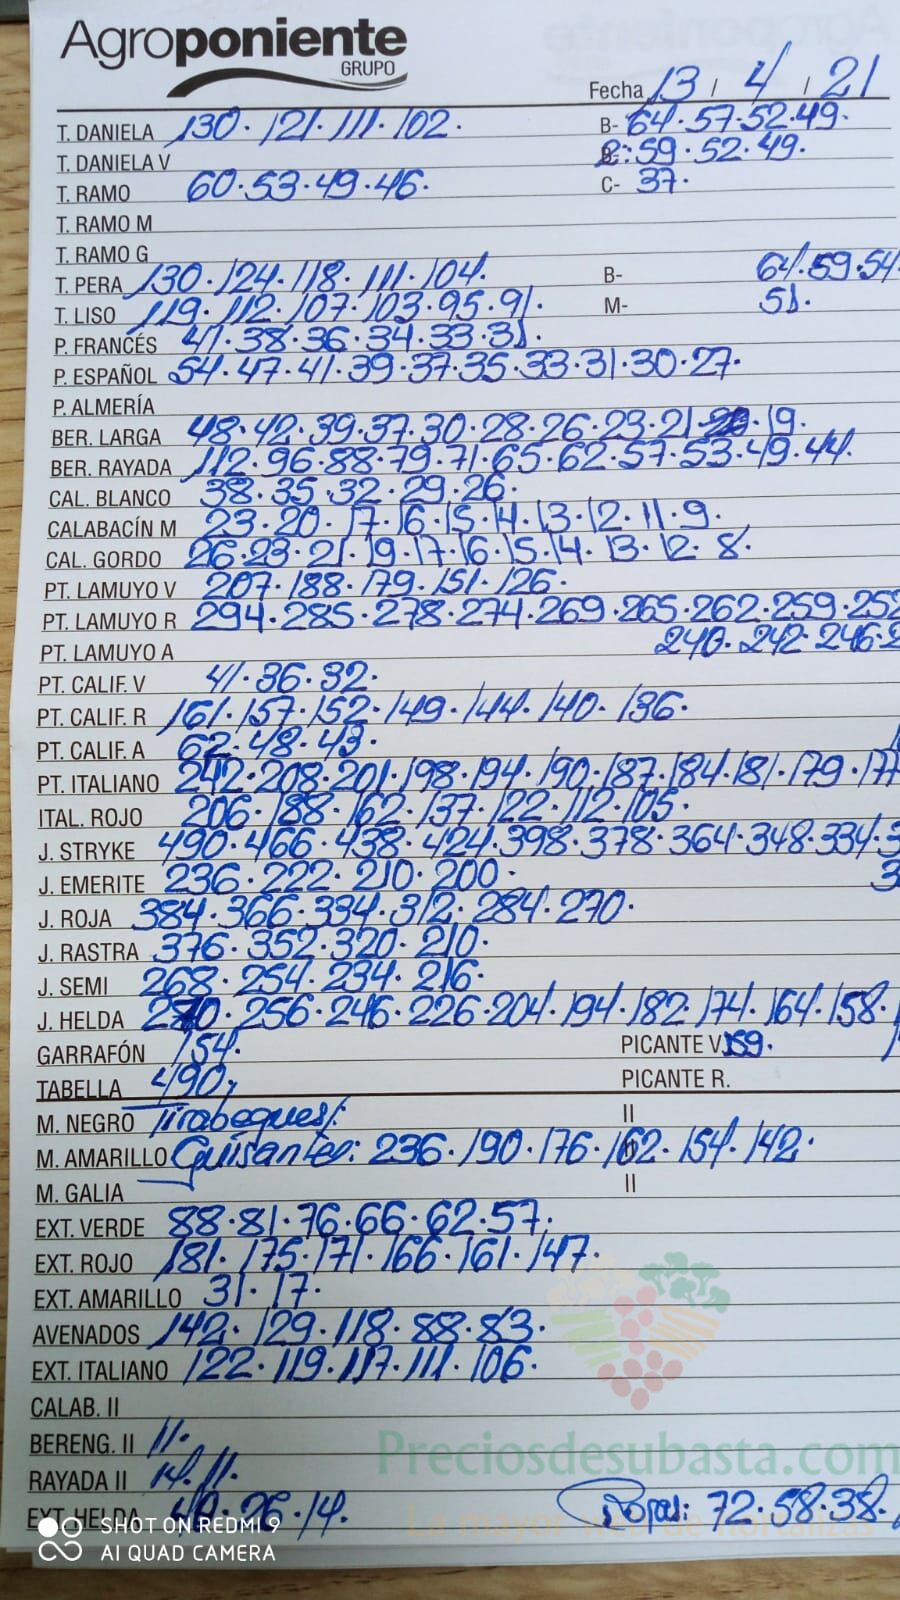 Agroponiente
GRUPO
Fecha 13 / 4 / 21
T. DANIELA 130. 121. 111. 102. B- 64. 57. 52. 49.
T. DANIELA V 59. 52. 49.
T. RAMO 60. 53. 49. 46. C- 37.
T. RAMO M
T. RAMO G
T. PERA 130. 124. 118. 111. 104. B- 64. 59. 54
T. LISO 119. 112. 107. 103. 95. 91. M- 51.
P. FRANCÉS 41. 38. 36. 34. 33. 31.
P. ESPAÑOL 54. 47. 41. 39. 37. 35. 33. 31. 30. 27.
P. ALMERÍA
BER. LARGA 48. 42. 39. 37. 30. 28. 26. 23. 21. 20. 19.
BER. RAYADA 112. 96. 88. 79. 71. 65. 62. 57. 53. 49. 44.
CAL. BLANCO 38. 35. 32. 29. 26.
CALABACÍN M 23. 20. 17. 16. 15. 14. 13. 12. 11. 9.
CAL. GORDO 26. 23. 21. 19. 17. 16. 15. 14. 13. 12. 8.
PT. LAMUYO V 207. 188. 179. 151. 126.
PT. LAMUYO R 294. 285. 278. 274. 269. 265. 262. 259. 252
240. 242. 246. 2
PT. LAMUYO A
PT. CALIF. V 41. 36. 32.
PT. CALIF. R 161. 157. 152. 149. 144. 140. 136.
PT. CALIF. A 62. 48. 43.
PT. ITALIANO 242. 208. 201. 198. 194. 190. 187. 184. 181. 179. 177
ITAL. ROJO 206. 188. 162. 137. 122. 112. 105.
J. STRYKE 490. 466. 438. 424. 398. 378. 364. 348. 334. 3
J. EMERITE 236. 222. 210. 200. 3
J. ROJA 384. 366. 334. 312. 284. 270.
J. RASTRA 376. 352. 320. 210.
J. SEMI 268. 254. 234. 216.
J. HELDA 270. 256. 246. 226. 204. 194. 182. 174. 164. 158.
GARRAFÓN 154. PICANTE V. 159.
TABELLA 490, PICANTE R.
M. NEGRO Tirabeques: II
M. AMARILLO Guisantes: 236. 190. 176. 162. 154. 142.
M. GALIA II
EXT. VERDE 88. 81. 76. 66. 62. 57.
EXT. ROJO 181. 175. 171. 166. 161. 147.
EXT. AMARILLO 31. 17.
AVENADOS 142. 129. 118. 88. 83.
EXT. ITALIANO 122. 119. 117. 111. 106.
CALAB. II
BERENG. II 11.
Preciosdesubasta.com
RAYADA II 14. 11.
EXT. HELDA 40. 26. 14. 72. 58. 38.
La mayor web de hortalizas
SHOT ON REDMI 9
AI QUAD CAMERA